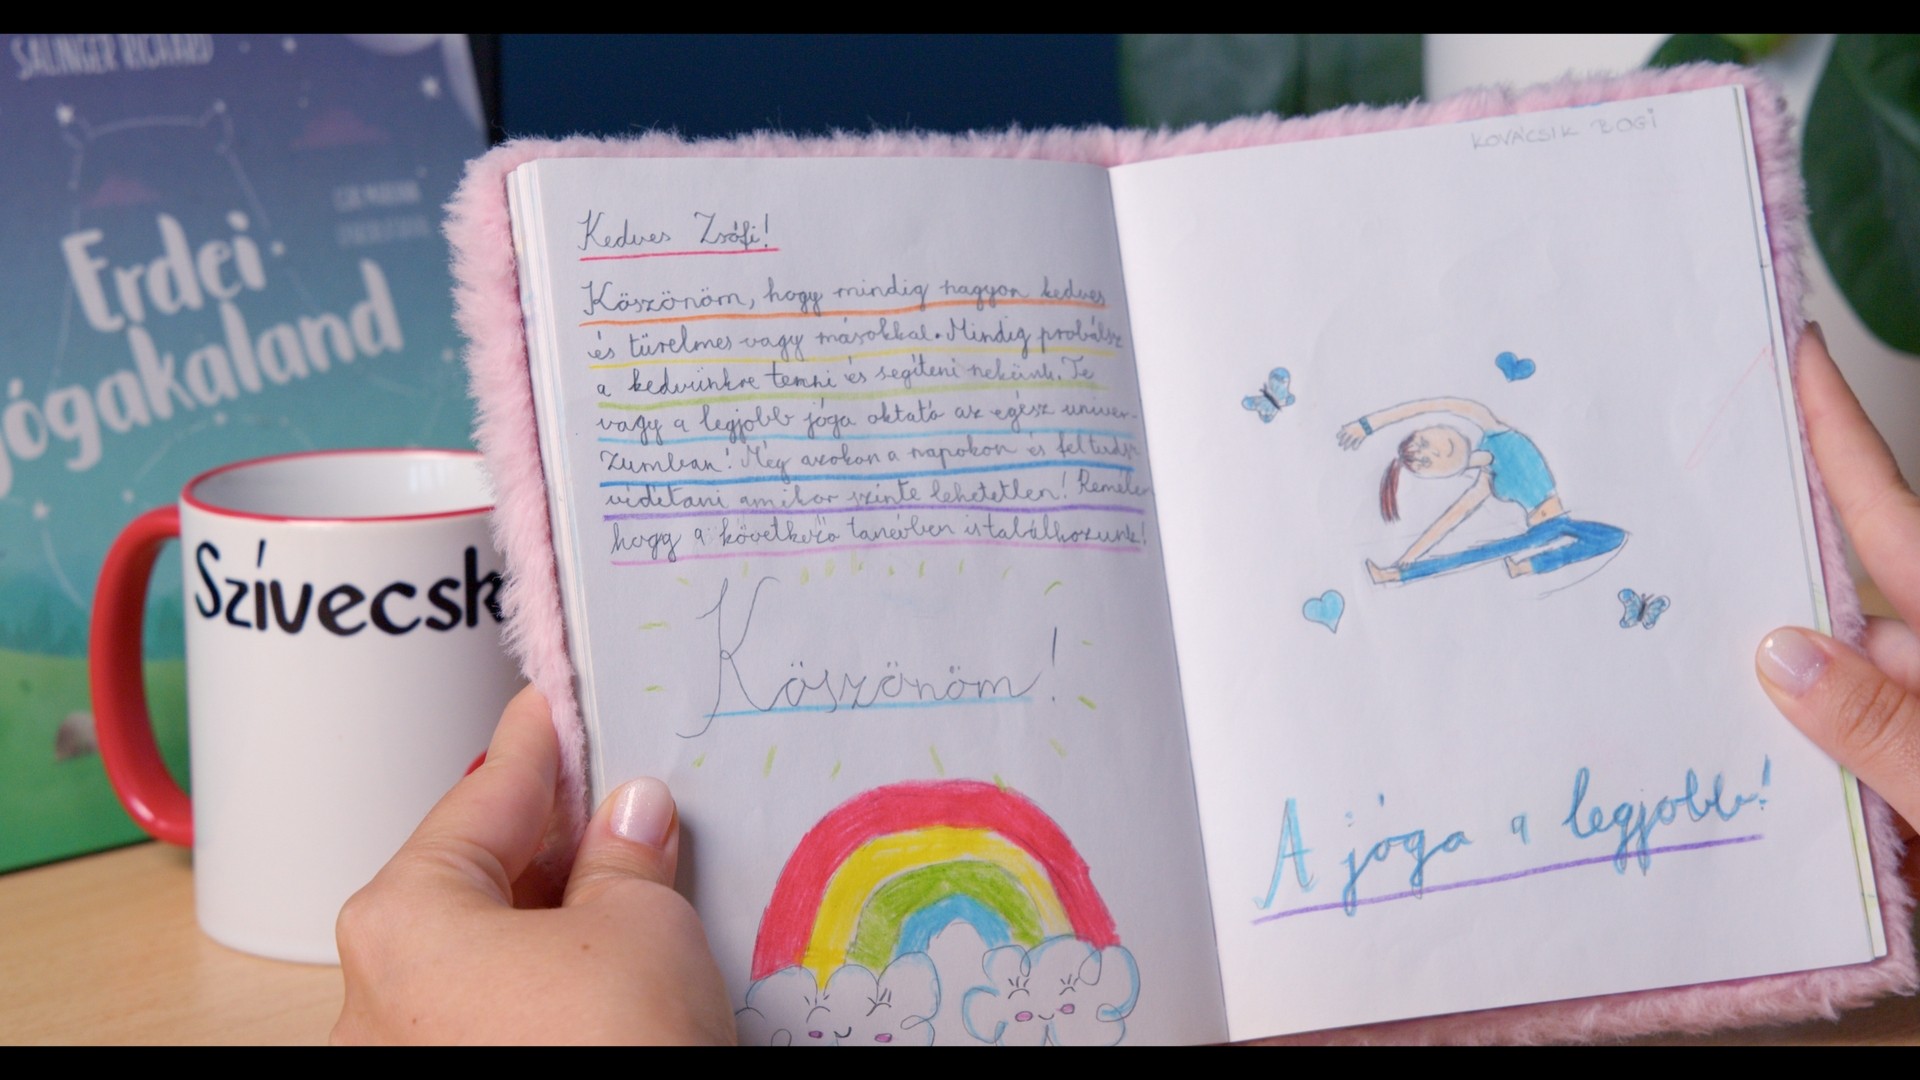 SALINGER RICHARD
Erdei
jógakaland
Szívecsk
Kedves Zsófi!
Köszönöm, hogy mindig nagyon kedves
és türelmes vagy másokkal. Mindig probálsz
a kedvünkre tenni és segíteni nekünk. Te
vagy a legjobb jóga oktató az egész univer-
zumban! Még azokon a napokon is fel tudsz
vidítani amikor szinte lehetetlen! Remélem
hogy a következő tanévben is találhozunk!
Köszönöm!
KOVÁCSIK BOGI
A jóga a legjobb!